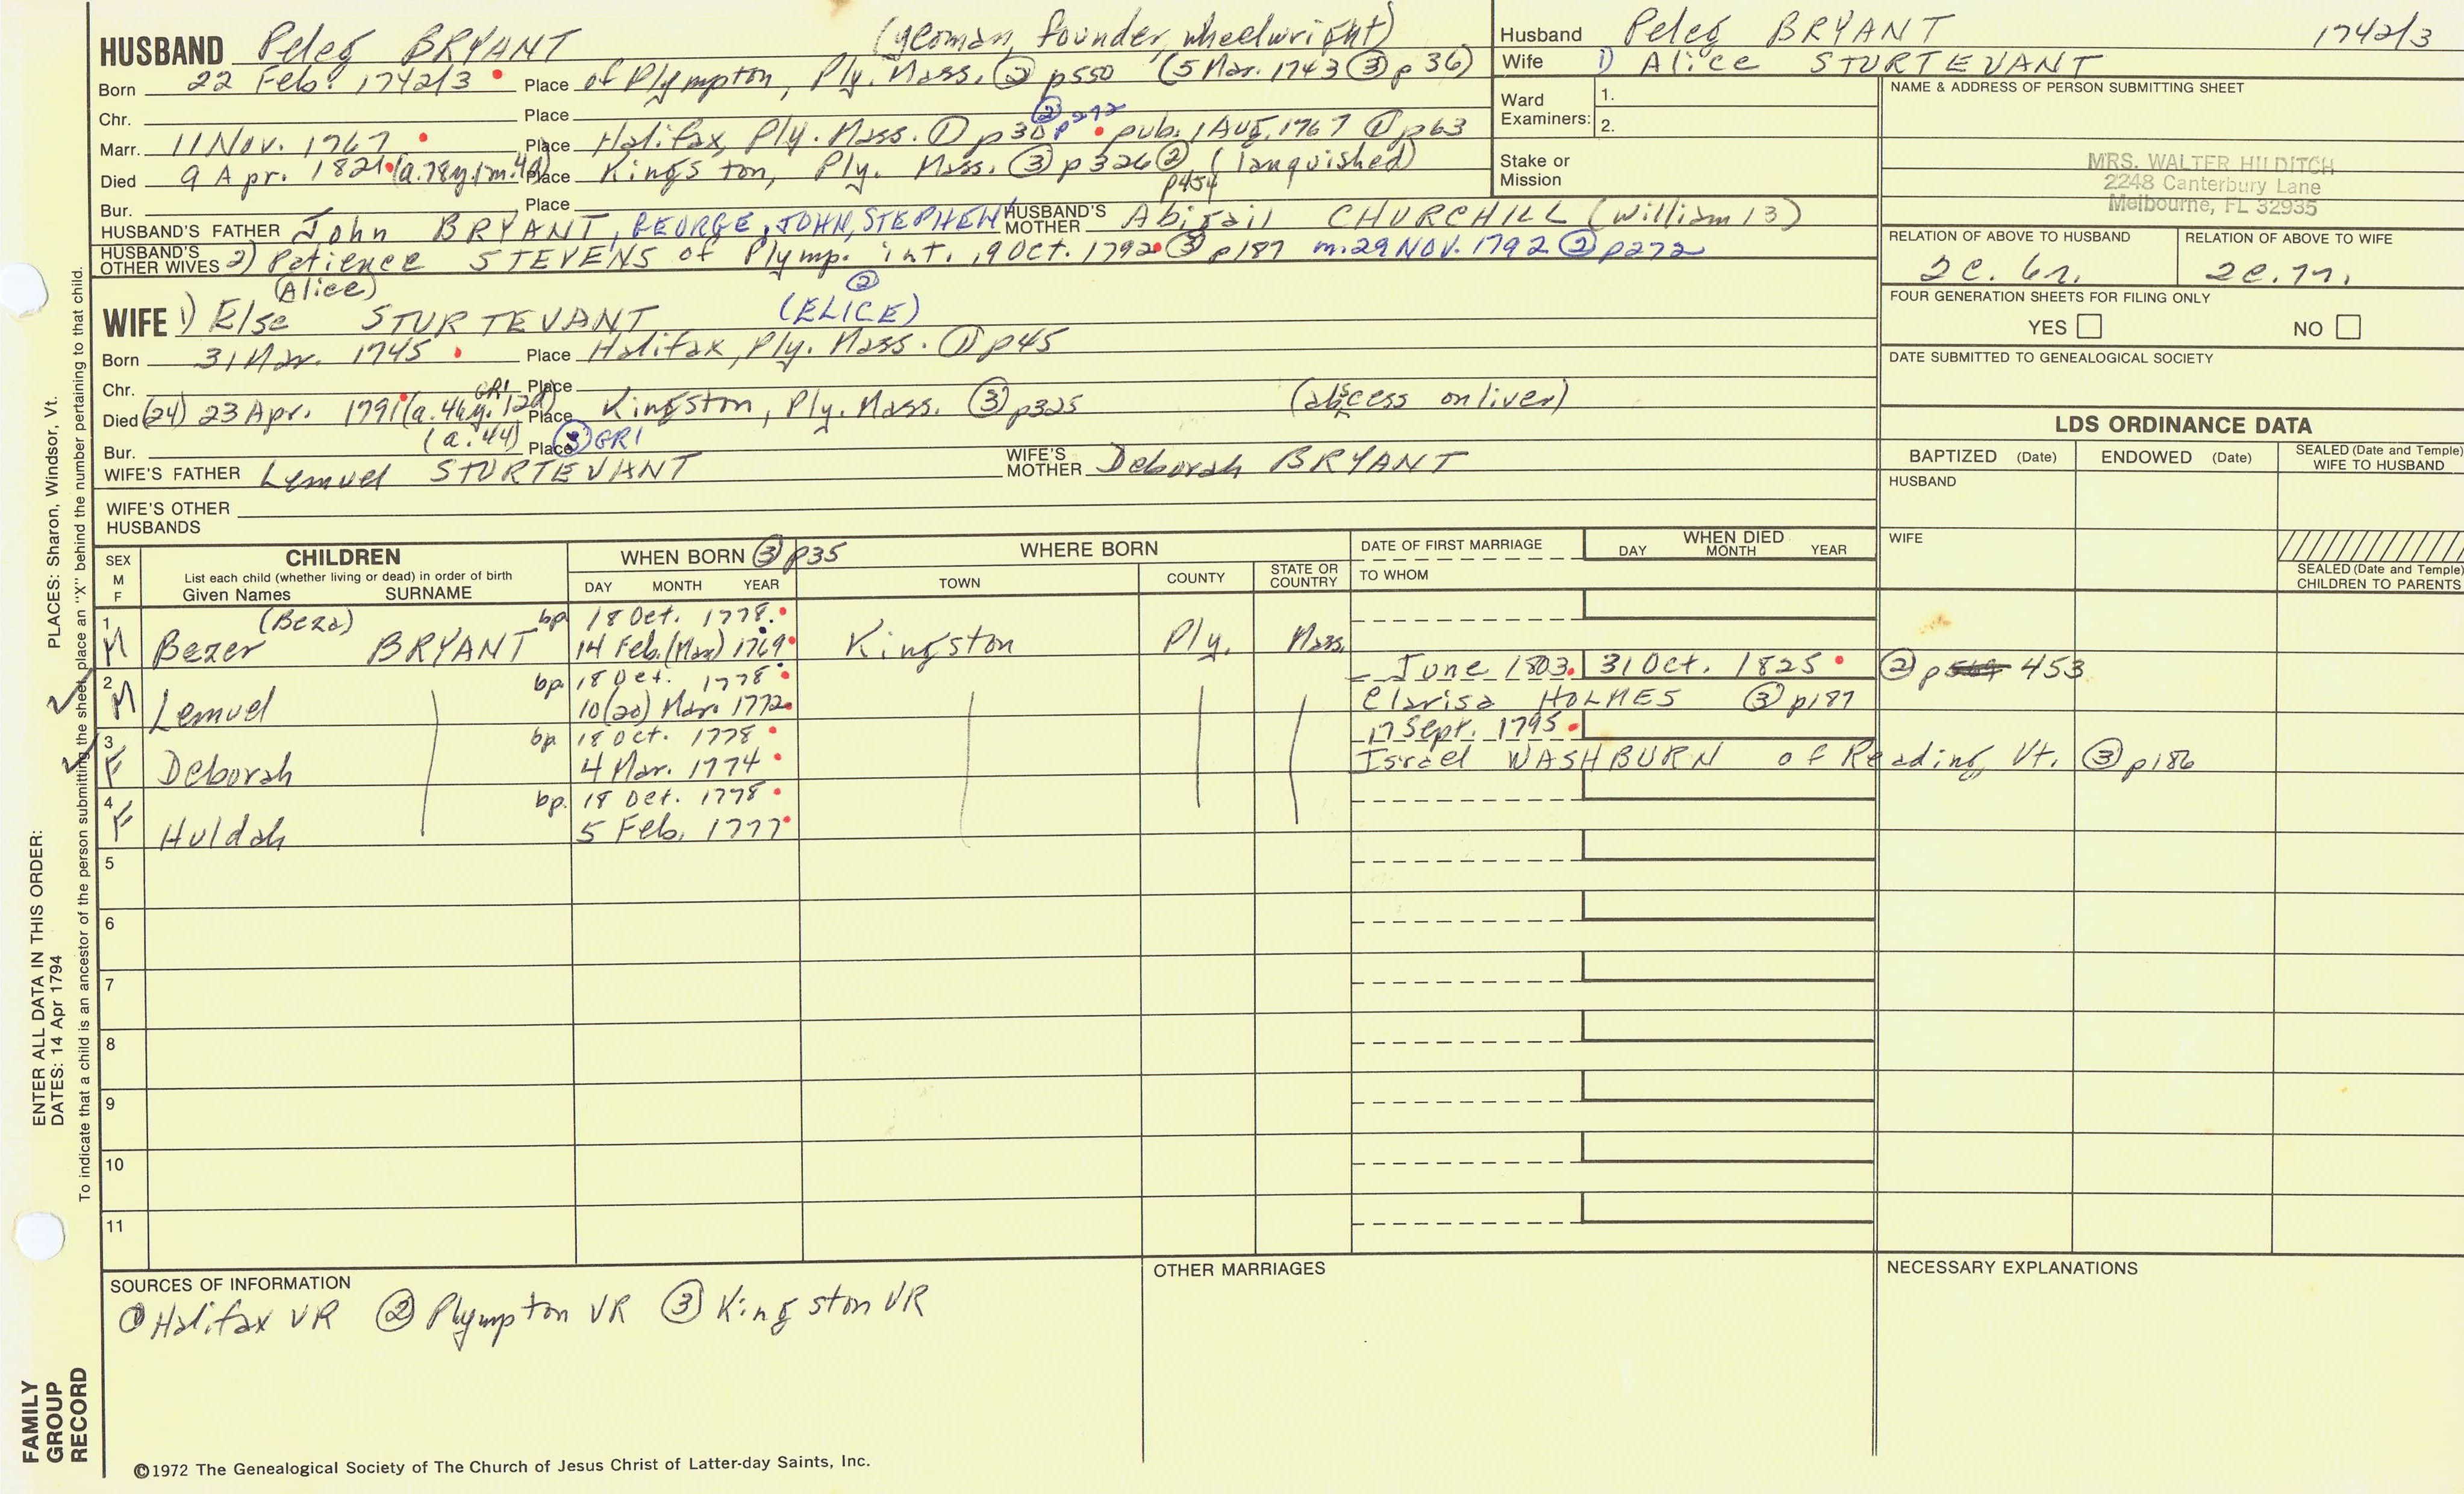 HUSBAND Peleg BRYANT (yeoman, founder, wheelwright)
Born 22 Feb. 1742/3 Place of Plympton, Ply. Mass. ② p550 (5 Mar. 1743 ③ p36)
Chr. Place
Marr. 11 Nov. 1767 Place Halifax, Ply. Mass. ① p30 ② p272 pub. 1 AUG. 1767 ① p63
Died 9 Apr. 1821 (a.78y.1m.4d) Place Kingston, Ply. Mass. ③ p326 ② p454 (lanquished)
Bur. Place
HUSBAND'S FATHER John BRYANT, GEORGE, JOHN, STEPHEN HUSBAND'S MOTHER Abigail CHURCHILL (William 13)
HUSBAND'S OTHER WIVES 2) Patience STEVENS of Plymp. int. 19 Oct. 1792 ③ p187 m. 29 NOV. 1792 ② p272
(Alice) ②
WIFE 1) Else STURTEVANT (ELICE)
Born 31 Mar. 1745 Place Halifax, Ply. Mass. ① p45
Chr. GR1 Place
Died (24) 23 Apr. 1791 (a.46y. 12d) Place Kingston, Ply. Mass. ③ p325 (abscess on liver)
(a.44)
Bur. Place ③ GR1
WIFE'S FATHER Lemuel STURTEVANT WIFE'S MOTHER Deborah BRYANT
WIFE'S OTHER HUSBANDS
Husband Peleg BRYANT 1742/3
Wife 1) Alice STURTEVANT
Ward Examiners: 1.
2.
Stake or Mission
NAME & ADDRESS OF PERSON SUBMITTING SHEET
MRS. WALTER HILDITCH
2248 Canterbury Lane
Melbourne, FL 32935
RELATION OF ABOVE TO HUSBAND RELATION OF ABOVE TO WIFE
2c. 6r. 2c. 7r.
FOUR GENERATION SHEETS FOR FILING ONLY
YES NO
DATE SUBMITTED TO GENEALOGICAL SOCIETY
LDS ORDINANCE DATA
BAPTIZED (Date) ENDOWED (Date) SEALED (Date and Temple) WIFE TO HUSBAND
HUSBAND
WIFE
SEALED (Date and Temple) CHILDREN TO PARENTS
SEX M F CHILDREN WHEN BORN ③ p35 WHERE BORN DATE OF FIRST MARRIAGE WHEN DIED
List each child (whether living or dead) in order of birth
Given Names SURNAME DAY MONTH YEAR TOWN COUNTY STATE OR COUNTRY TO WHOM DAY MONTH YEAR
1 (Beza) bp. 18 Oct. 1778.
M Bezer BRYANT 14 Feb. (Mar) 1769 Kingston Ply. Mass.
2 bp. 18 Oct. 1778 June 1803. 31 Oct. 1825 ② p 453
M Lemuel 10(20) Mar. 1772 Clarisa HOLMES ③ p187
3 bp. 18 Oct. 1778 17 Sept. 1795
F Deborah 4 Mar. 1774 Israel WASHBURN of Reading, Vt. ③ p186
4 bp. 18 Oct. 1778
F Huldah 5 Feb. 1777
5
6
7
8
9
10
11
SOURCES OF INFORMATION OTHER MARRIAGES NECESSARY EXPLANATIONS
① Halifax VR ② Plympton VR ③ Kingston VR
©1972 The Genealogical Society of The Church of Jesus Christ of Latter-day Saints, Inc.
FAMILY GROUP RECORD
ENTER ALL DATA IN THIS ORDER:
DATES: 14 Apr 1794
PLACES: Sharon, Windsor, Vt.
To indicate that a child is an ancestor of the person submitting the sheet, place an "X" behind the number pertaining to that child.